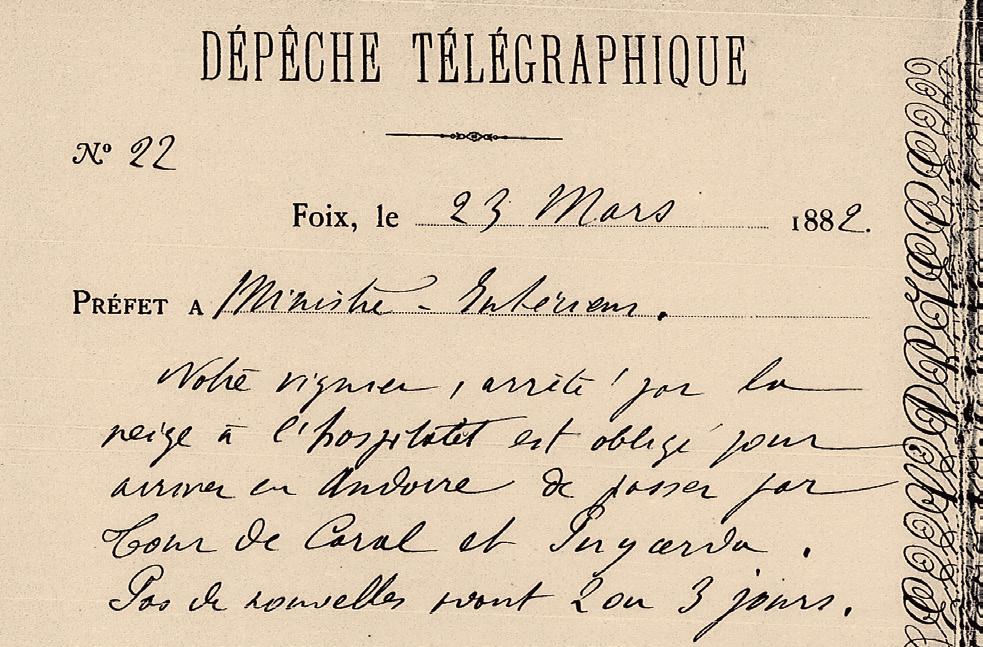 DÉPÊCHE TÉLÉGRAPHIQUE
Nº 22
Foix, le 23 Mars 1882.
PRÉFET A Ministre - Intérieur.
Notre viguier, arrêté par la
neige à l'hospitalet est obligé pour
arriver en Andorre de passer par
Tour de Carol et Puycerda.
Pas de nouvelles avant 2 ou 3 jours.